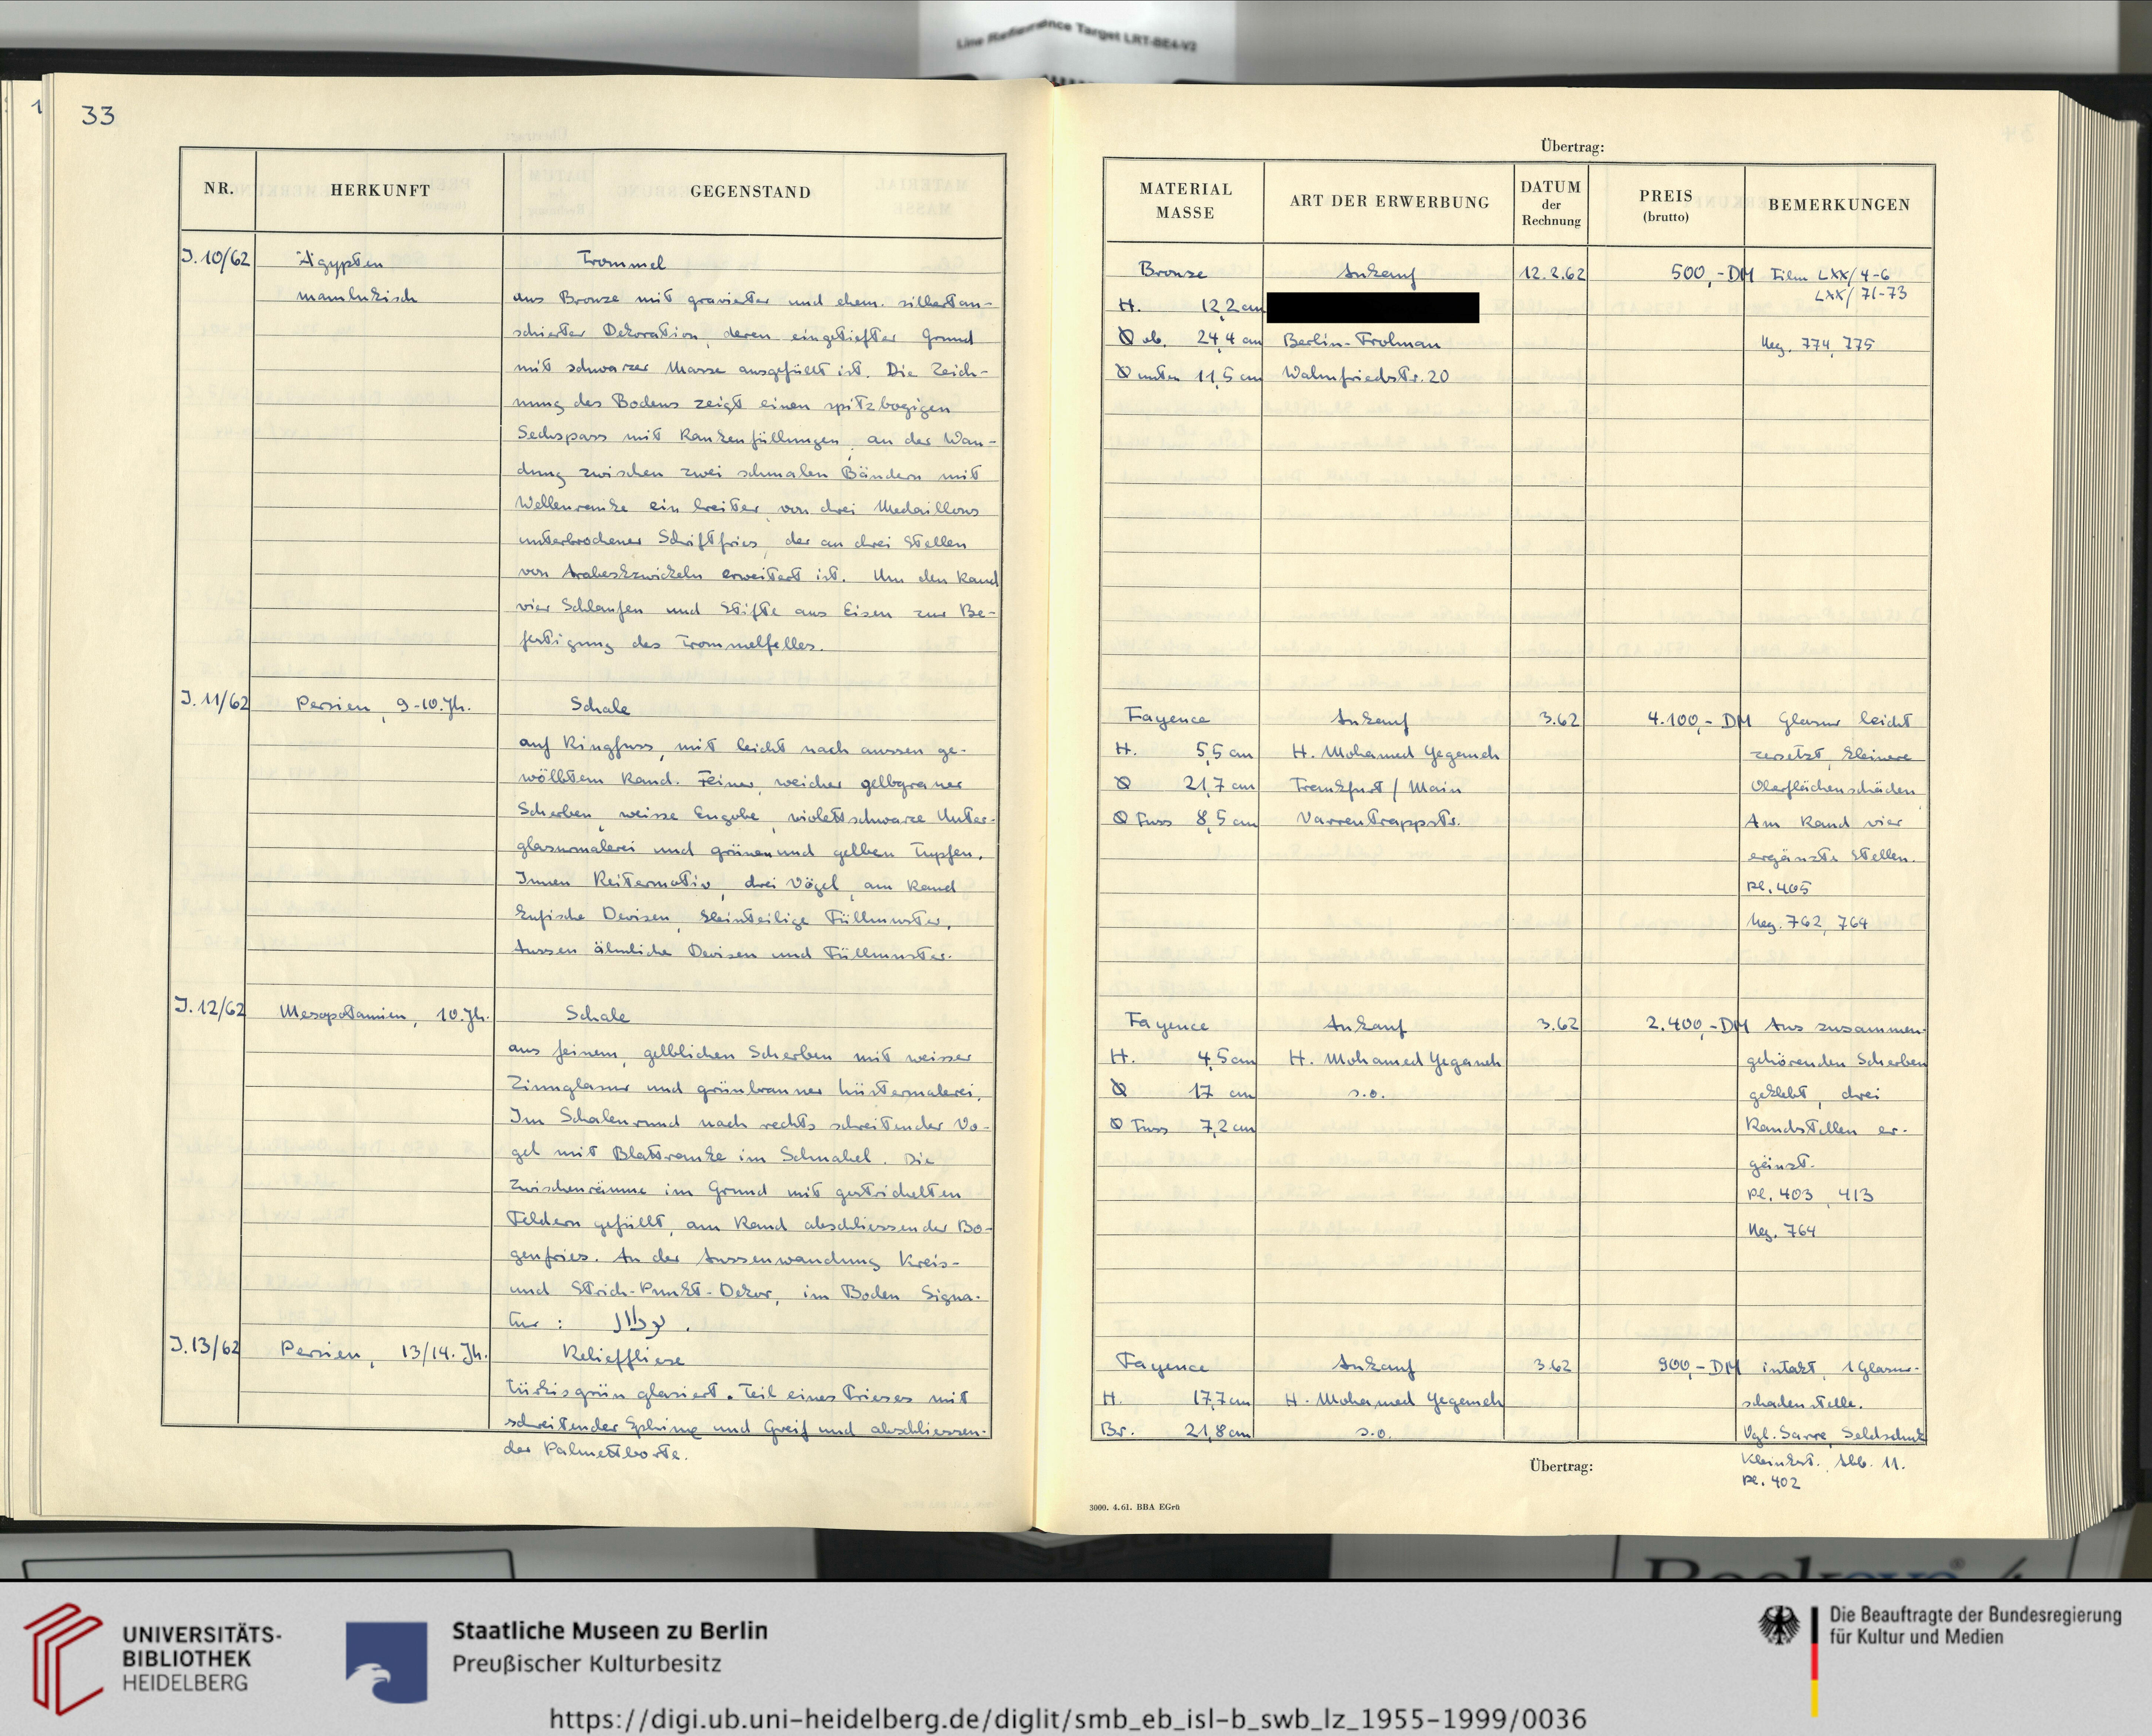 Line Reference Target LRT-BE4-V2
33
NR.
HERKUNFT
GEGENSTAND
J.10/62
Ägypten
mamlukisch
Trommel
aus Bronze mit gravierter und ehem. silbertau-
schierter Dekoration, deren eingetiefter Grund
mit schwarzer Masse ausgefüllt ist. Die Zeich-
nung des Bodens zeigt einen spitzbogigen
Sechspass mit Rankenfüllungen, an der Wan-
dung zwischen zwei schmalen Bändern mit
Wellenranke ein breiter, von drei Medaillons
unterbrochener Schriftfries, der an drei Stellen
von Arabeskzwickeln erweitert ist. Um den Rand
vier Schlaufen und Stifte aus Eisen zur Be-
festigung des Trommelfelles.
J.11/62
Persien, 9-10. Jh.
Schale
auf Ringfuss, mit leicht nach aussen ge-
wölbtem Rand. Feiner, weicher gelbgrauer
Scherben, weisse Engobe, violettschwarze Unter-
glasurmalerei und grünen und gelben Tupfen.
Innen Reitermotiv, drei Vögel, am Rand
kufische Devisen, kleinteilige Füllmuster.
Aussen ähnliche Devisen und Füllmuster.
J.12/62
Mesopotamien, 10. Jh.
Schale
aus feinem, gelblichen Scherben mit weisser
Zinnglasur und grünbrauner Lüstermalerei.
Im Schalenrund nach rechts schreitender Vo-
gel mit Blattranke im Schnabel. Die
Zwischenräume im Grund mit gestrichelten
Feldern gefüllt, am Rand abschliessender Bo-
genfries. An der Aussenwandung Kreis-
und Strich-Punkt-Dekor, im Boden Signa-
tur :
J.13/62
Persien, 13/14. Jh.
Relieffliese
türkisgrün glasiert. Teil eines Frieses mit
schreitender Sphinx und Greif und abschliessen-
der Palmettborte.
Übertrag:
MATERIAL
MASSE
ART DER ERWERBUNG
DATUM
der
Rechnung
PREIS
(brutto)
BEMERKUNGEN
Bronze
H. 12,2 cm
Ø ob. 24,4 cm
Ø unten 11,5 cm
Ankauf
Berlin-Frohnau
Walmfriedstr. 20
12.2.62
500,- DM
Film LXX/4-6
LXX/71-73
Neg. 774, 775
Fayence
H. 5,5 cm
Ø 21,7 cm
Ø Fuss 8,5 cm
Ankauf
H. Mohamed Yeganeh
Frankfurt / Main
Varrentrappstr.
3.62
4.100,- DM
Glasur leicht
zersetzt, kleinere
Oberflächenschäden
Am Rand vier
ergänzte Stellen.
Pl. 405
Neg. 762, 764
Fayence
H. 4,5 cm
Ø 17 cm
Ø Fuss 7,2 cm
Ankauf
H. Mohamed Yeganeh
s.o.
3.62
2.400,- DM
Aus zusammen-
gehörenden Scherben
geklebt, drei
Randstellen er-
gänzt.
Pl. 403, 413
Neg. 764
Fayence
H. 17,7 cm
Br. 21,8 cm
Ankauf
H. Mohamed Yeganeh
s.o.
3.62
900,- DM
intakt, 1 Glasur-
schadenstelle.
Vgl. Sarre, Seldschuk
Kleinkst., Abb. 11.
Pl. 402
Übertrag:
3000. 4.61. BBA EGrü
UNIVERSITÄTS-
BIBLIOTHEK
HEIDELBERG
Staatliche Museen zu Berlin
Preußischer Kulturbesitz
Die Beauftragte der Bundesregierung
für Kultur und Medien
https://digi.ub.uni-heidelberg.de/diglit/smb_eb_isl-b_swb_lz_1955-1999/0036